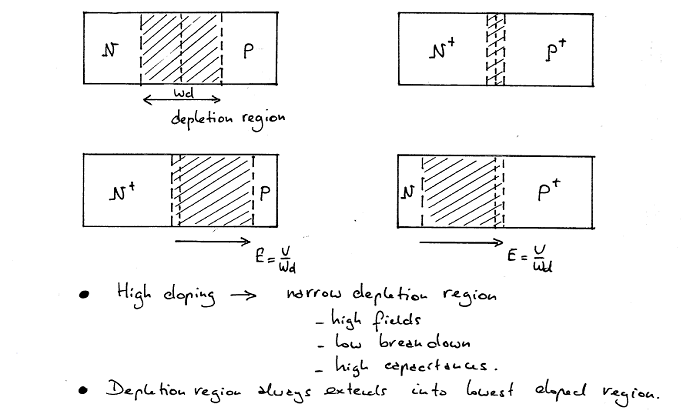 N P
Wd
depletion region
N⁺ P⁺
N⁺ P
E = U/Wd
N P⁺
E = U/Wd
• High doping → narrow depletion region
- high fields
- low breakdown
- high capacitances.
• Depletion region always extends into lowest doped region.